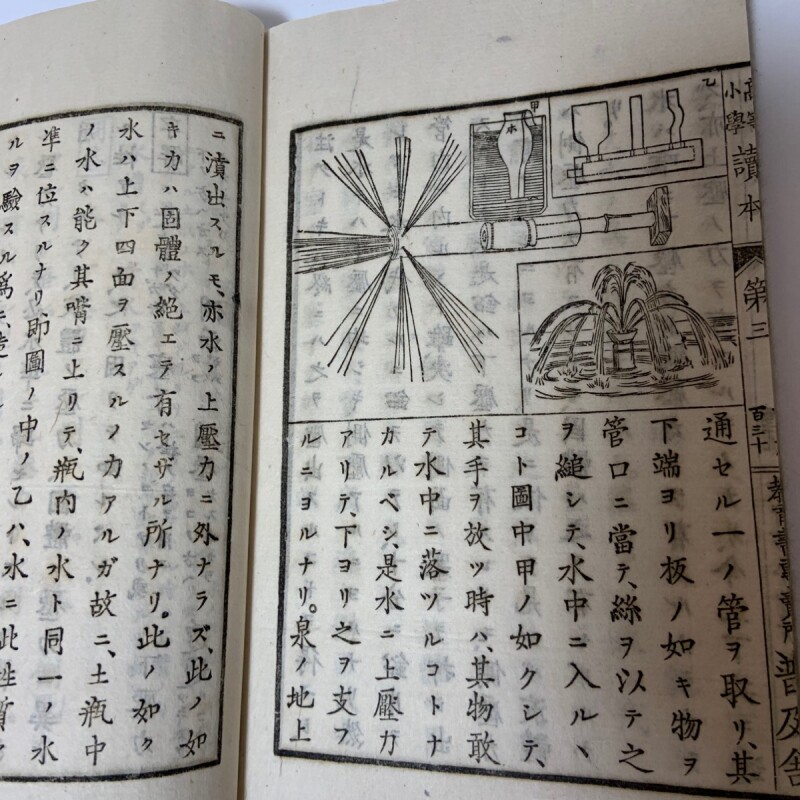 高等小學讀本
第三
百三十
普及舎
乙
甲
水
通セル一ノ管ヲ取リ、其
下端ヨリ板ノ如キ物ヲ
管口ニ當テ、絲ヲ以テ之
ヲ縋シテ、水中ニ入ルヽ
コト圖中甲ノ如クシテ、
其手ヲ放ツ時ハ、其物敢
テ水中ニ落ツルコトナ
カルベシ、是水ニ上壓力
アリテ、下ヨリ之ヲ支フ
ルニヨルナリ。泉ノ地上
ニ濆出スルモ、亦水ノ上壓力ニ外ナラズ、此ノ如
キ力ハ固體ノ絶エテ有セザル所ナリ。此ノ如ク
水ハ上下四面ヲ壓スルノ力アルガ故ニ、土瓶中
ノ水ハ能ク其嘴ニ上リテ、瓶内ノ水ト同一ノ水
準ニ位スルナリ即圖ノ中ノ乙ハ、水ニ此性質
ルヲ驗スル爲ニ